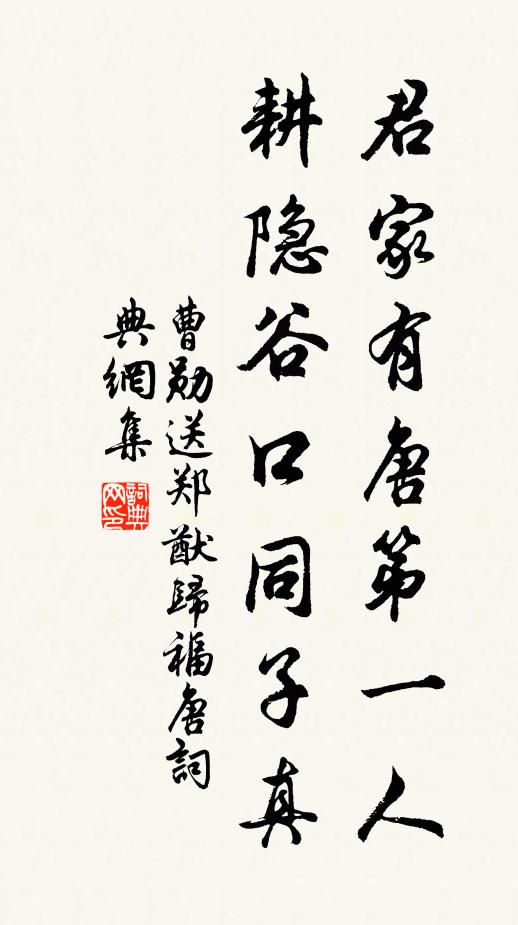 君家有唐第一人
耕隐谷口同子真
曹勛送郑猷歸福唐詞
典網集
詞典网印